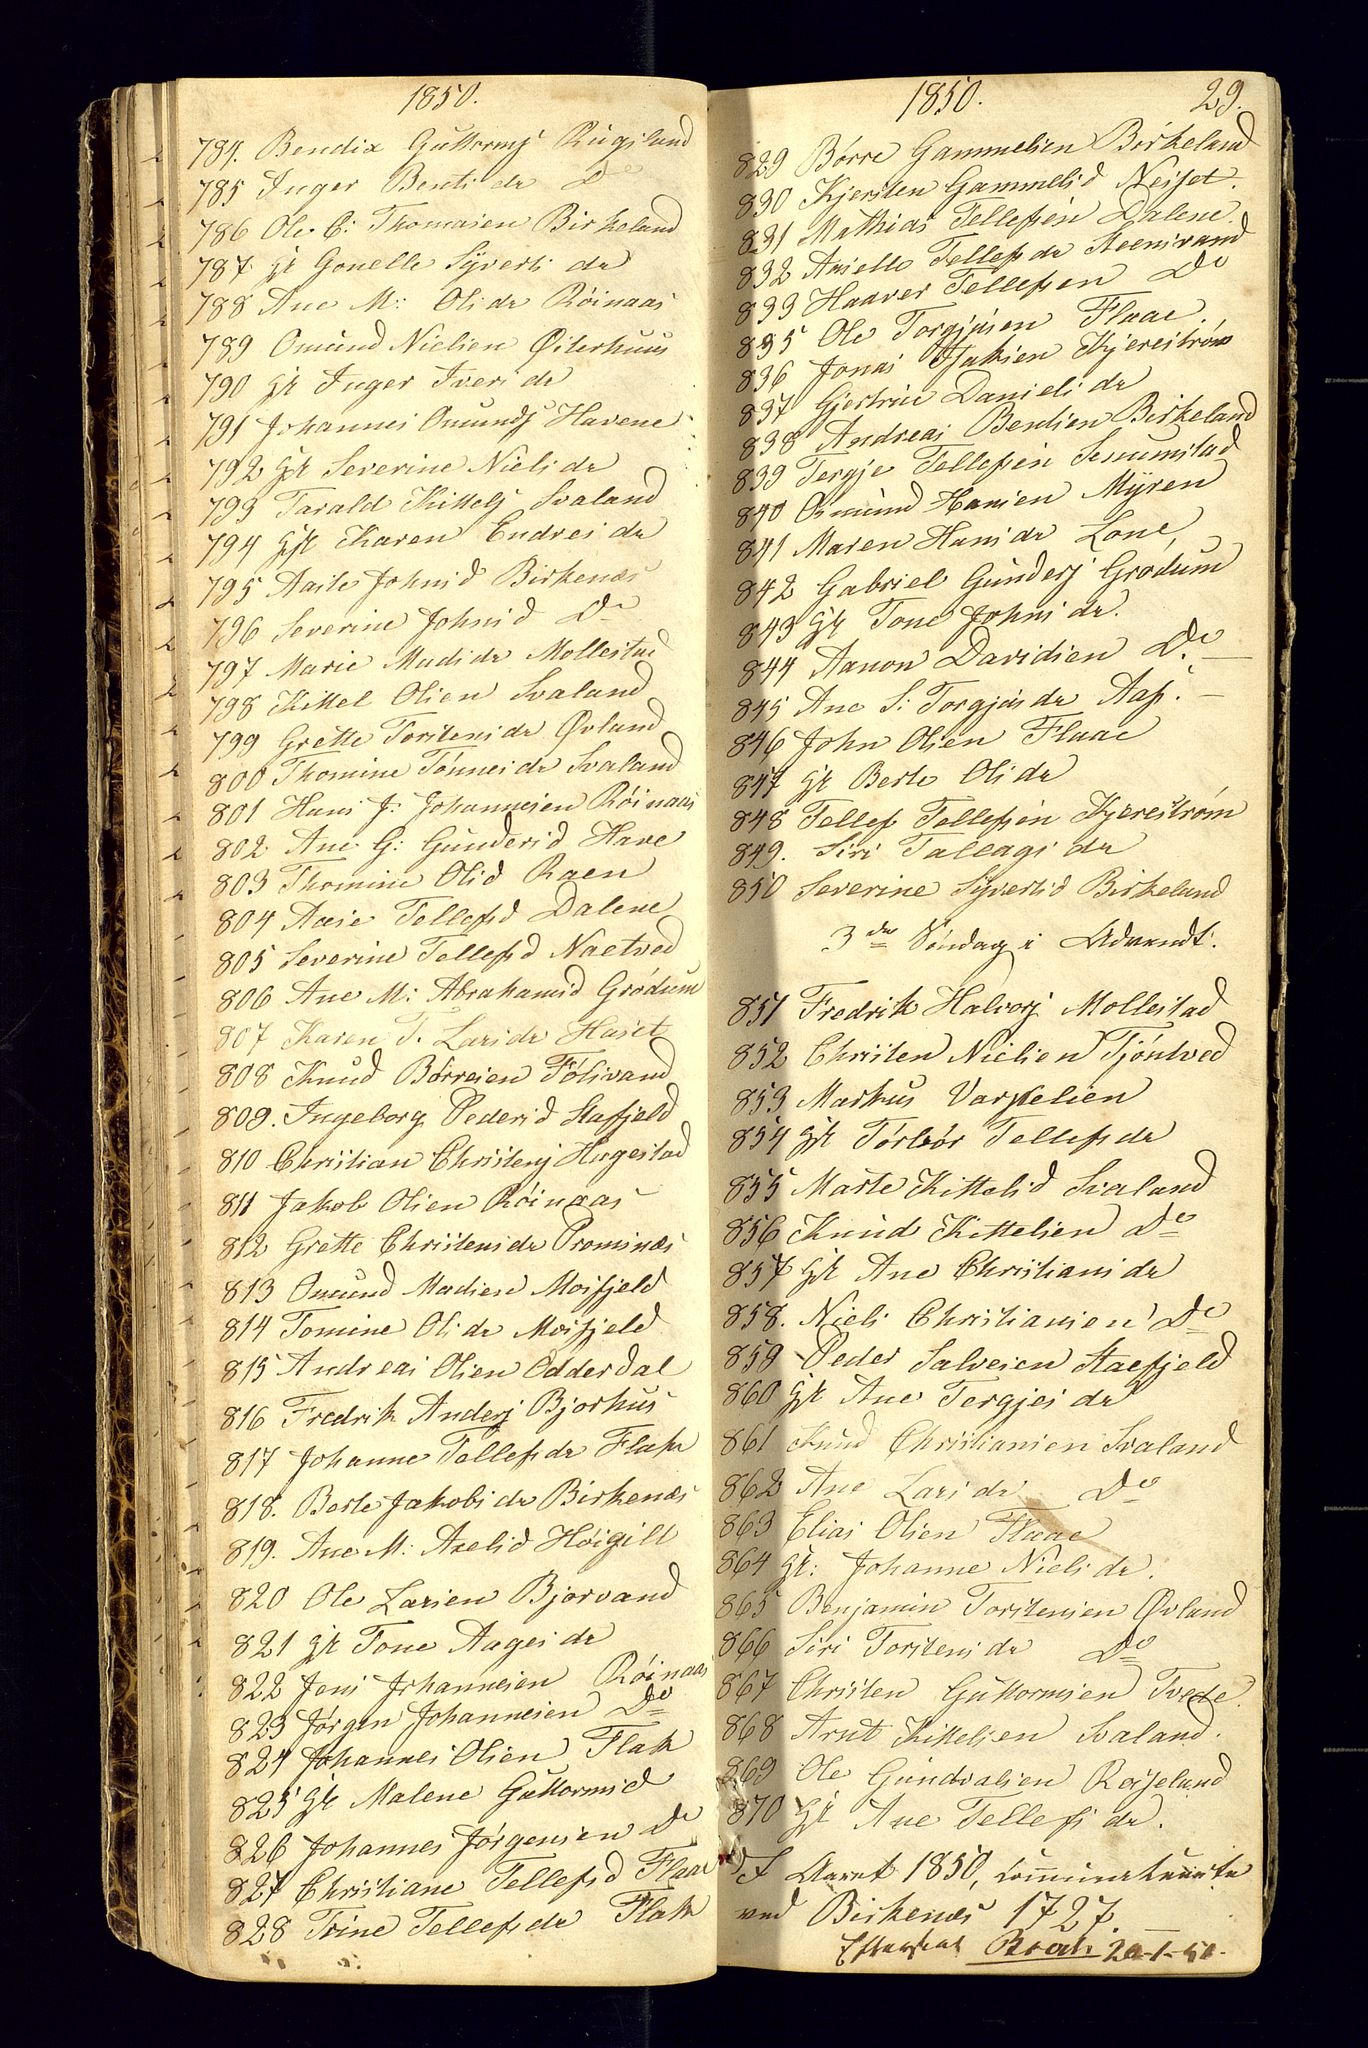 1850.
784. Bendix Guttormsj Rugsland
785 Inger Bentsdr Do
786 Ole C: Thomasen Birkeland
787 gk Gonelle Syvertsdr
788 Ane M: Olsdr Röinaas
789 Omund Nielsen Øiterhuus
790 gk Inger Iversdr
791 Johannes Omundsj Havene
792 gk Severine Nielsdr
793 Tarald Kittelsj Svaland
794 gk Karen Endresdr
795 Aaste Johnsd Birkenæs
796 Severine Johnsd Do
797 Marie Madsdr Mollestad
798 Kittel Olsen Svaland
799 Grette Torstensdr Øvland
800 Thomine Tönnesdr Svaland
801 Hans J: Johannesen Röinaas
802 Ane G: Gundersd Have
803 Thomine Olsd Raen
804 Aase Tellefsd Dalene
805 Severine Tellefsd Naetved
806 Ane M: Abrahamsd Grödum
807 Karen T. Larsdr Huset
808 Knud Börresen Fölivand
809. Ingeborg Pedersd Stafjeld
810 Christian Christensj Hugestad
811 Jakob Olsen Röinaas
812 Grette Christensdr Prominæs
813 Omund Madsen Mosfjeld
814 Tomine Olsdr Mosfjeld
815 Andreas Olsen Odderdal
816 Fredrik Andersj Bjorhus
817 Johanne Tellefsdr Flak
818. Berte Jakobsdr Birkenæs
819. Ane M: Axelsd Höigilt
820 Ole Larsen Bjorvand
821 gk Tone Aagesdr
822 Jens Johannesen Röinaas
823 Jørgen Johannesen Do
824 Johannes Olsen Flak
825 gk Malene Guttormsd
826 Johannes Jørgensen Do
827 Christiane Tellefsd Flaae
828 Trine Tellefsdr Flak
1850. 29.
829 Börre Gammelsen Birkeland
830 Kjersten Gammelsd Neset.
831 Mathias Tellefsen Dalene.
832 Aselle Tellefsdr Steensvand
833 Haaver Tellefsen Do
835 Ole Torgjusen Flaae.
836 Jonas Isaksen Kjereström
837 Gjertrue Danielsdr
838 Andreas Bentsen Birkeland
839 Tergje Tellefsen Senumstad
840 Osmund Hansen Myren
841 Maren Hansdr Lone,
842 Gabriel Gundersj Grödum
843 gk Tone Johnsdr.
844 Aanon Davidsen Do
845 Ane S: Torgjusdr Aas.
846 John Olsen Flaae
847 gk Berte Olsdr
848 Tellef Tellefsen Kjereström
849. Siri Tallagsdr
850 Severine Syvertsd Birkeland
3die Söndag i Advendt.
851 Fredrik Halvorsj Mollestad
852 Christen Nielsen Tjöntved
853 Markus Varpelien
854 gk Törbör Tellefsdr
855 Marte Kittelsd Svaland
856 Knud Kittelsen Do
857 gk Ane Christiansdr
858. Niels Christiansen Do
859 Peder Salvesen Staefjeld
860 gk Ane Tergjesdr
861 Knud Christiansen Svaland
862 Ane Larsdr Do
863 Elias Olsen Flaae
864 gk: Johanne Nielsdr.
865 Benjamin Torstensen Øvland
866 Siri Torstensdr Do
867 Christen Guttormsen Tvede.
868 Arnt Kittelsen Svaland.
869 Ole Gundvalsen Roiseland
870 gk Ane Tellefsdr.
I Aaret 1850, communicerte
ved Birkenæs 1727.
Efterseet 20-1-51.